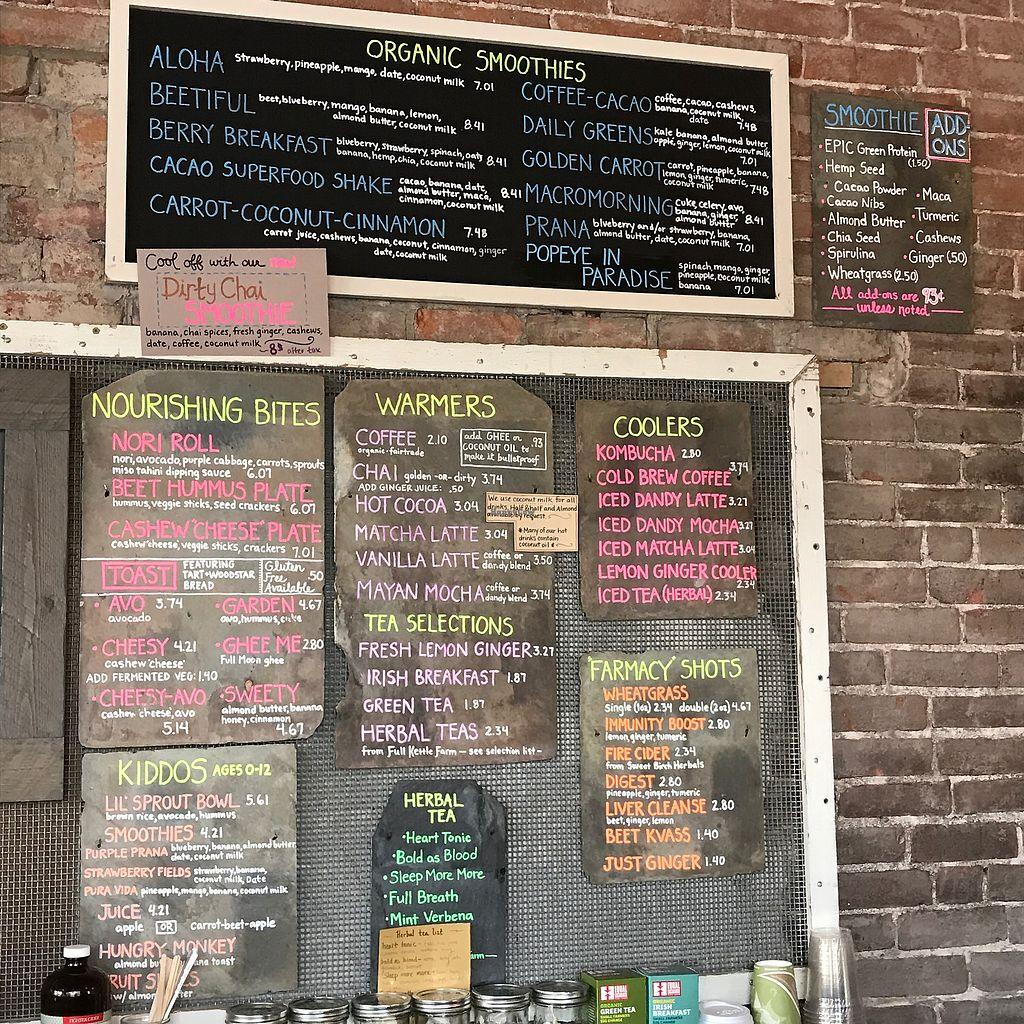 ORGANIC SMOOTHIES
ALOHA strawberry, pineapple, mango, date, coconut milk 7.01
BEETIFUL beet, blueberry, mango, banana, lemon,
almond butter, coconut milk 8.41
BERRY BREAKFAST blueberry, strawberry, spinach, oats
banana, hemp, chia, coconut milk 8.41
CACAO SUPERFOOD SHAKE cacao, banana, date,
almond butter, maca,
cinnamon, coconut milk 8.41
CARROT-COCONUT-CINNAMON 7.48
carrot juice, cashews, banana, coconut, cinnamon, ginger
date, coconut milk
COFFEE-CACAO coffee, cacao, cashews,
banana, coconut milk,
date 7.48
DAILY GREENS kale, banana, almond butter,
apple, ginger, lemon, coconut milk
7.01
GOLDEN CARROT carrot, pineapple, banana,
lemon, ginger, tumeric,
coconut milk 7.48
MACROMORNING cuke, celery, avo,
banana, ginger,
almond butter 8.41
PRANA blueberry and/or strawberry, banana,
almond butter, date, coconut milk 7.01
POPEYE IN
PARADISE spinach, mango, ginger,
pineapple, coconut milk,
banana 7.01
SMOOTHIE ADD-
ONS
• EPIC Green Protein
(1.50)
• Hemp Seed
• Cacao Powder
• Cacao Nibs
• Almond Butter
• Chia Seed
• Spirulina
• Wheatgrass (2.50)
• Maca
• Turmeric
• Cashews
• Ginger (.50)
All add-ons are 93¢
unless noted
Cool off with our new!
Dirty Chai
SMOOTHIE
banana, chai spices, fresh ginger, cashews,
date, coffee, coconut milk 8⁰⁰ after tax
NOURISHING BITES
NORI ROLL
nori, avocado, purple cabbage, carrots, sprouts
miso tahini dipping sauce 6.07
BEET HUMMUS PLATE
hummus, veggie sticks, seed crackers 6.07
CASHEW "CHEESE" PLATE
cashew 'cheese', veggie sticks, crackers 7.01
TOAST FEATURING
TART + WOODSTAR
BREAD
Gluten
Free .50
Available
• AVO 3.74
avocado
• GARDEN 4.67
avo, hummus, cuke
• CHEESY 4.21
cashew 'cheese'
• GHEE ME 2.80
Full Moon ghee
ADD FERMENTED VEG: 1.40
• CHEESY-AVO
cashew 'cheese', avo
5.14
• SWEETY
almond butter, banana
honey, cinnamon
4.67
KIDDOS AGES 0-12
LIL' SPROUT BOWL 5.61
brown rice, avocado, hummus
SMOOTHIES 4.21
PURPLE PRANA blueberry, banana, almond butter
date, coconut milk
STRAWBERRY FIELDS strawberry, banana,
coconut milk, Date
PURA VIDA pineapple, mango, banana, coconut milk
JUICE 4.21
apple OR carrot-beet-apple
HUNGRY MONKEY
almond toast
w/ almond
WARMERS
COFFEE 2.10
organic · fairtrade
add GHEE or .93
COCONUT OIL to
make it bulletproof
CHAI golden -or- dirty 3.74
ADD GINGER JUICE: .50
HOT COCOA 3.04
We use coconut milk for all
drinks. Half & half and Almond
request.
* Many of our hot
drinks contain
coconut oil *
MATCHA LATTE 3.04
VANILLA LATTE coffee or
dandy blend 3.50
MAYAN MOCHA coffee or
dandy blend 3.74
TEA SELECTIONS
FRESH LEMON GINGER 3.27
IRISH BREAKFAST 1.87
GREEN TEA 1.87
HERBAL TEAS 2.34
from Full Kettle Farm — see selection list —
HERBAL
TEA
• Heart Tonic
• Bold as Blood
• Sleep More More
• Full Breath
• Mint Verbena
Herbal tea list
COOLERS
KOMBUCHA 2.80
COLD BREW COFFEE 3.74
ICED DANDY LATTE 3.27
ICED DANDY MOCHA 3.27
ICED MATCHA LATTE 3.04
LEMON GINGER COOLER
2.34
ICED TEA (HERBAL) 2.34
'FARMACY' SHOTS
WHEATGRASS
single (1oz) 2.34 double (2oz) 4.67
IMMUNITY BOOST 2.80
lemon, ginger, tumeric
FIRE CIDER 2.34
from Sweet Birch Herbals
DIGEST 2.80
pineapple, ginger, tumeric
LIVER CLEANSE 2.80
beet, ginger, lemon
BEET KVASS 1.40
JUST GINGER 1.40
EQUAL
EXCHANGE
ORGANIC
GREEN TEA
EQUAL
EXCHANGE
ORGANIC
IRISH
BREAKFAST